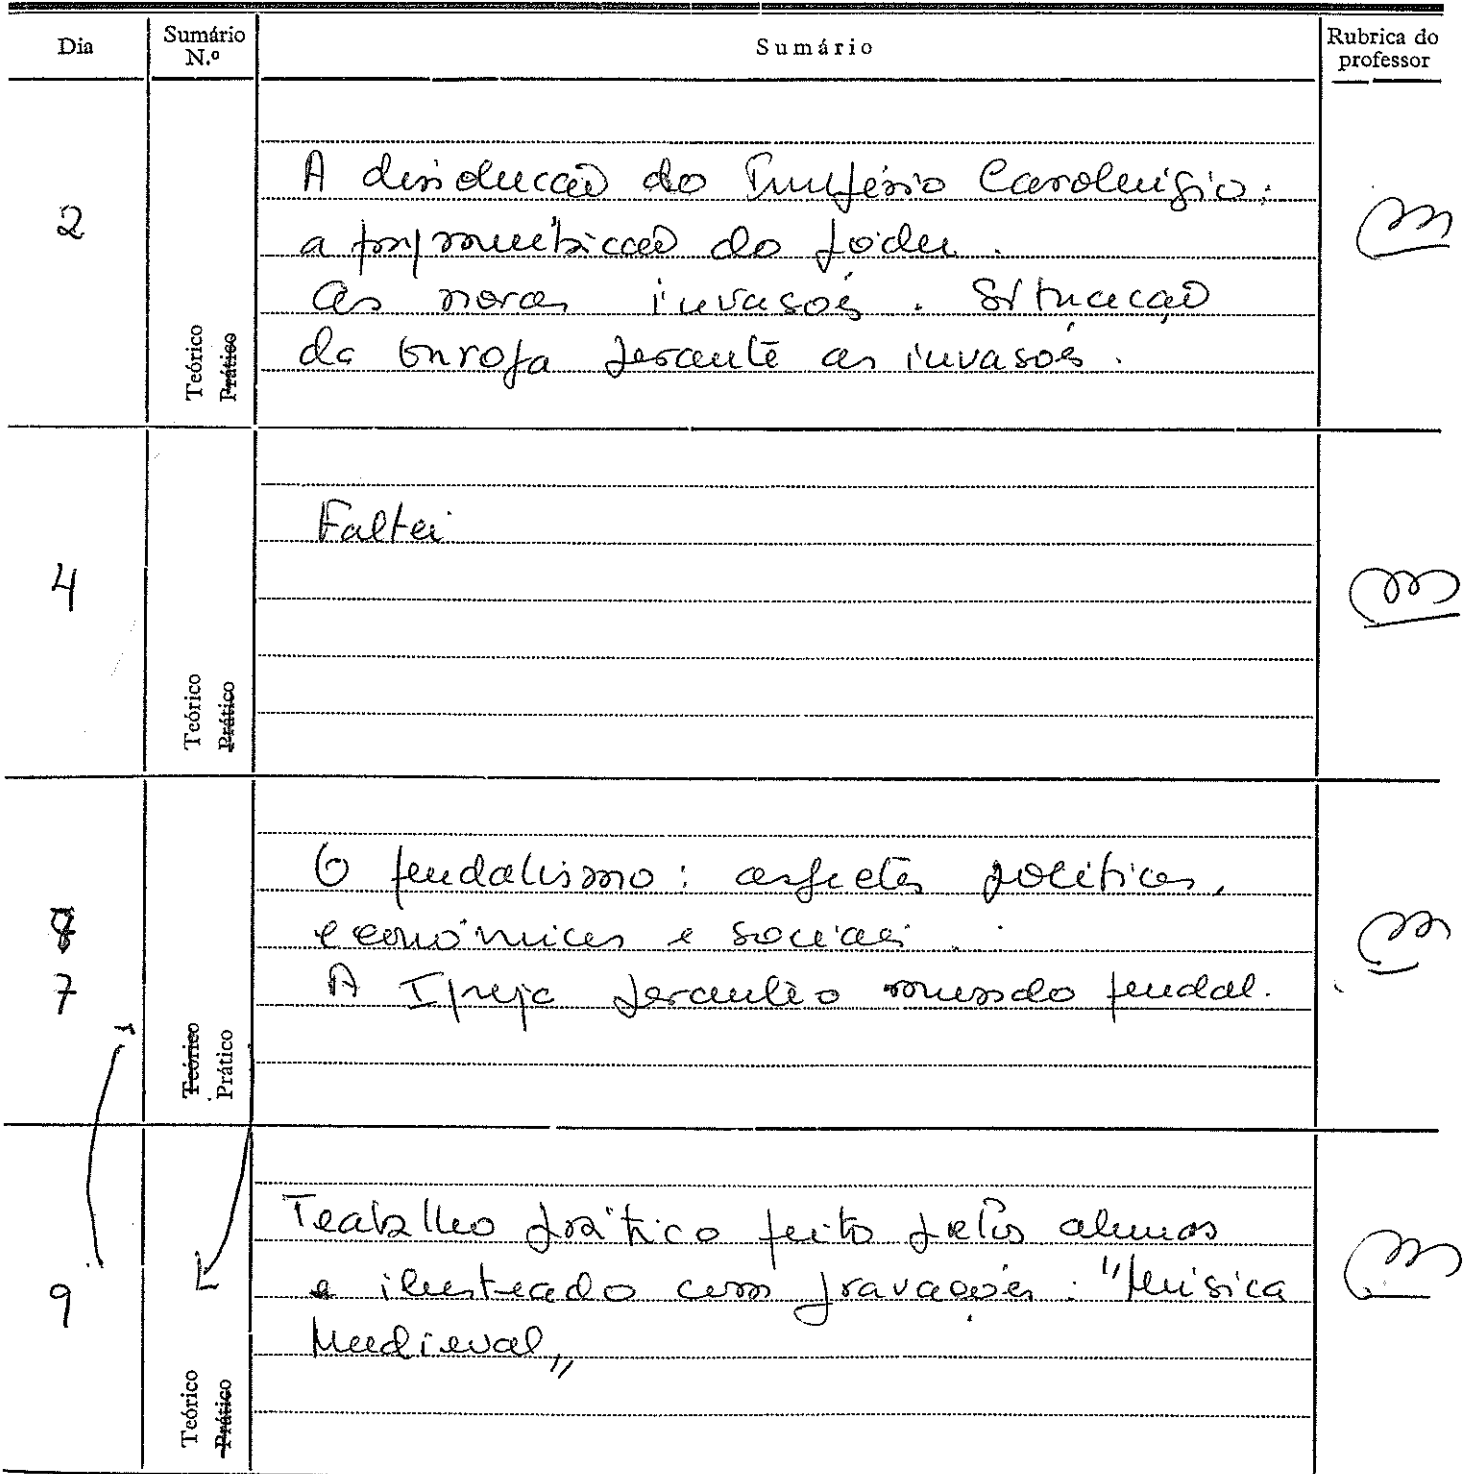 Dia
Sumário N.º
Sumário
Rubrica do professor
2
Teórico
Prático
A dissolução do Império Carolíngio:
a fragmentação do poder.
As novas invasões. Situação
da Europa perante as invasões.
4
Teórico
Prático
Faltei
8
7
Teórico
Prático
O feudalismo: aspectos políticos,
económicos e sociais.
A Igreja perante o mundo feudal.
9
Teórico
Prático
Trabalho prático feito pelos alunos
e ilustrado com gravações: "Música
Medieval"